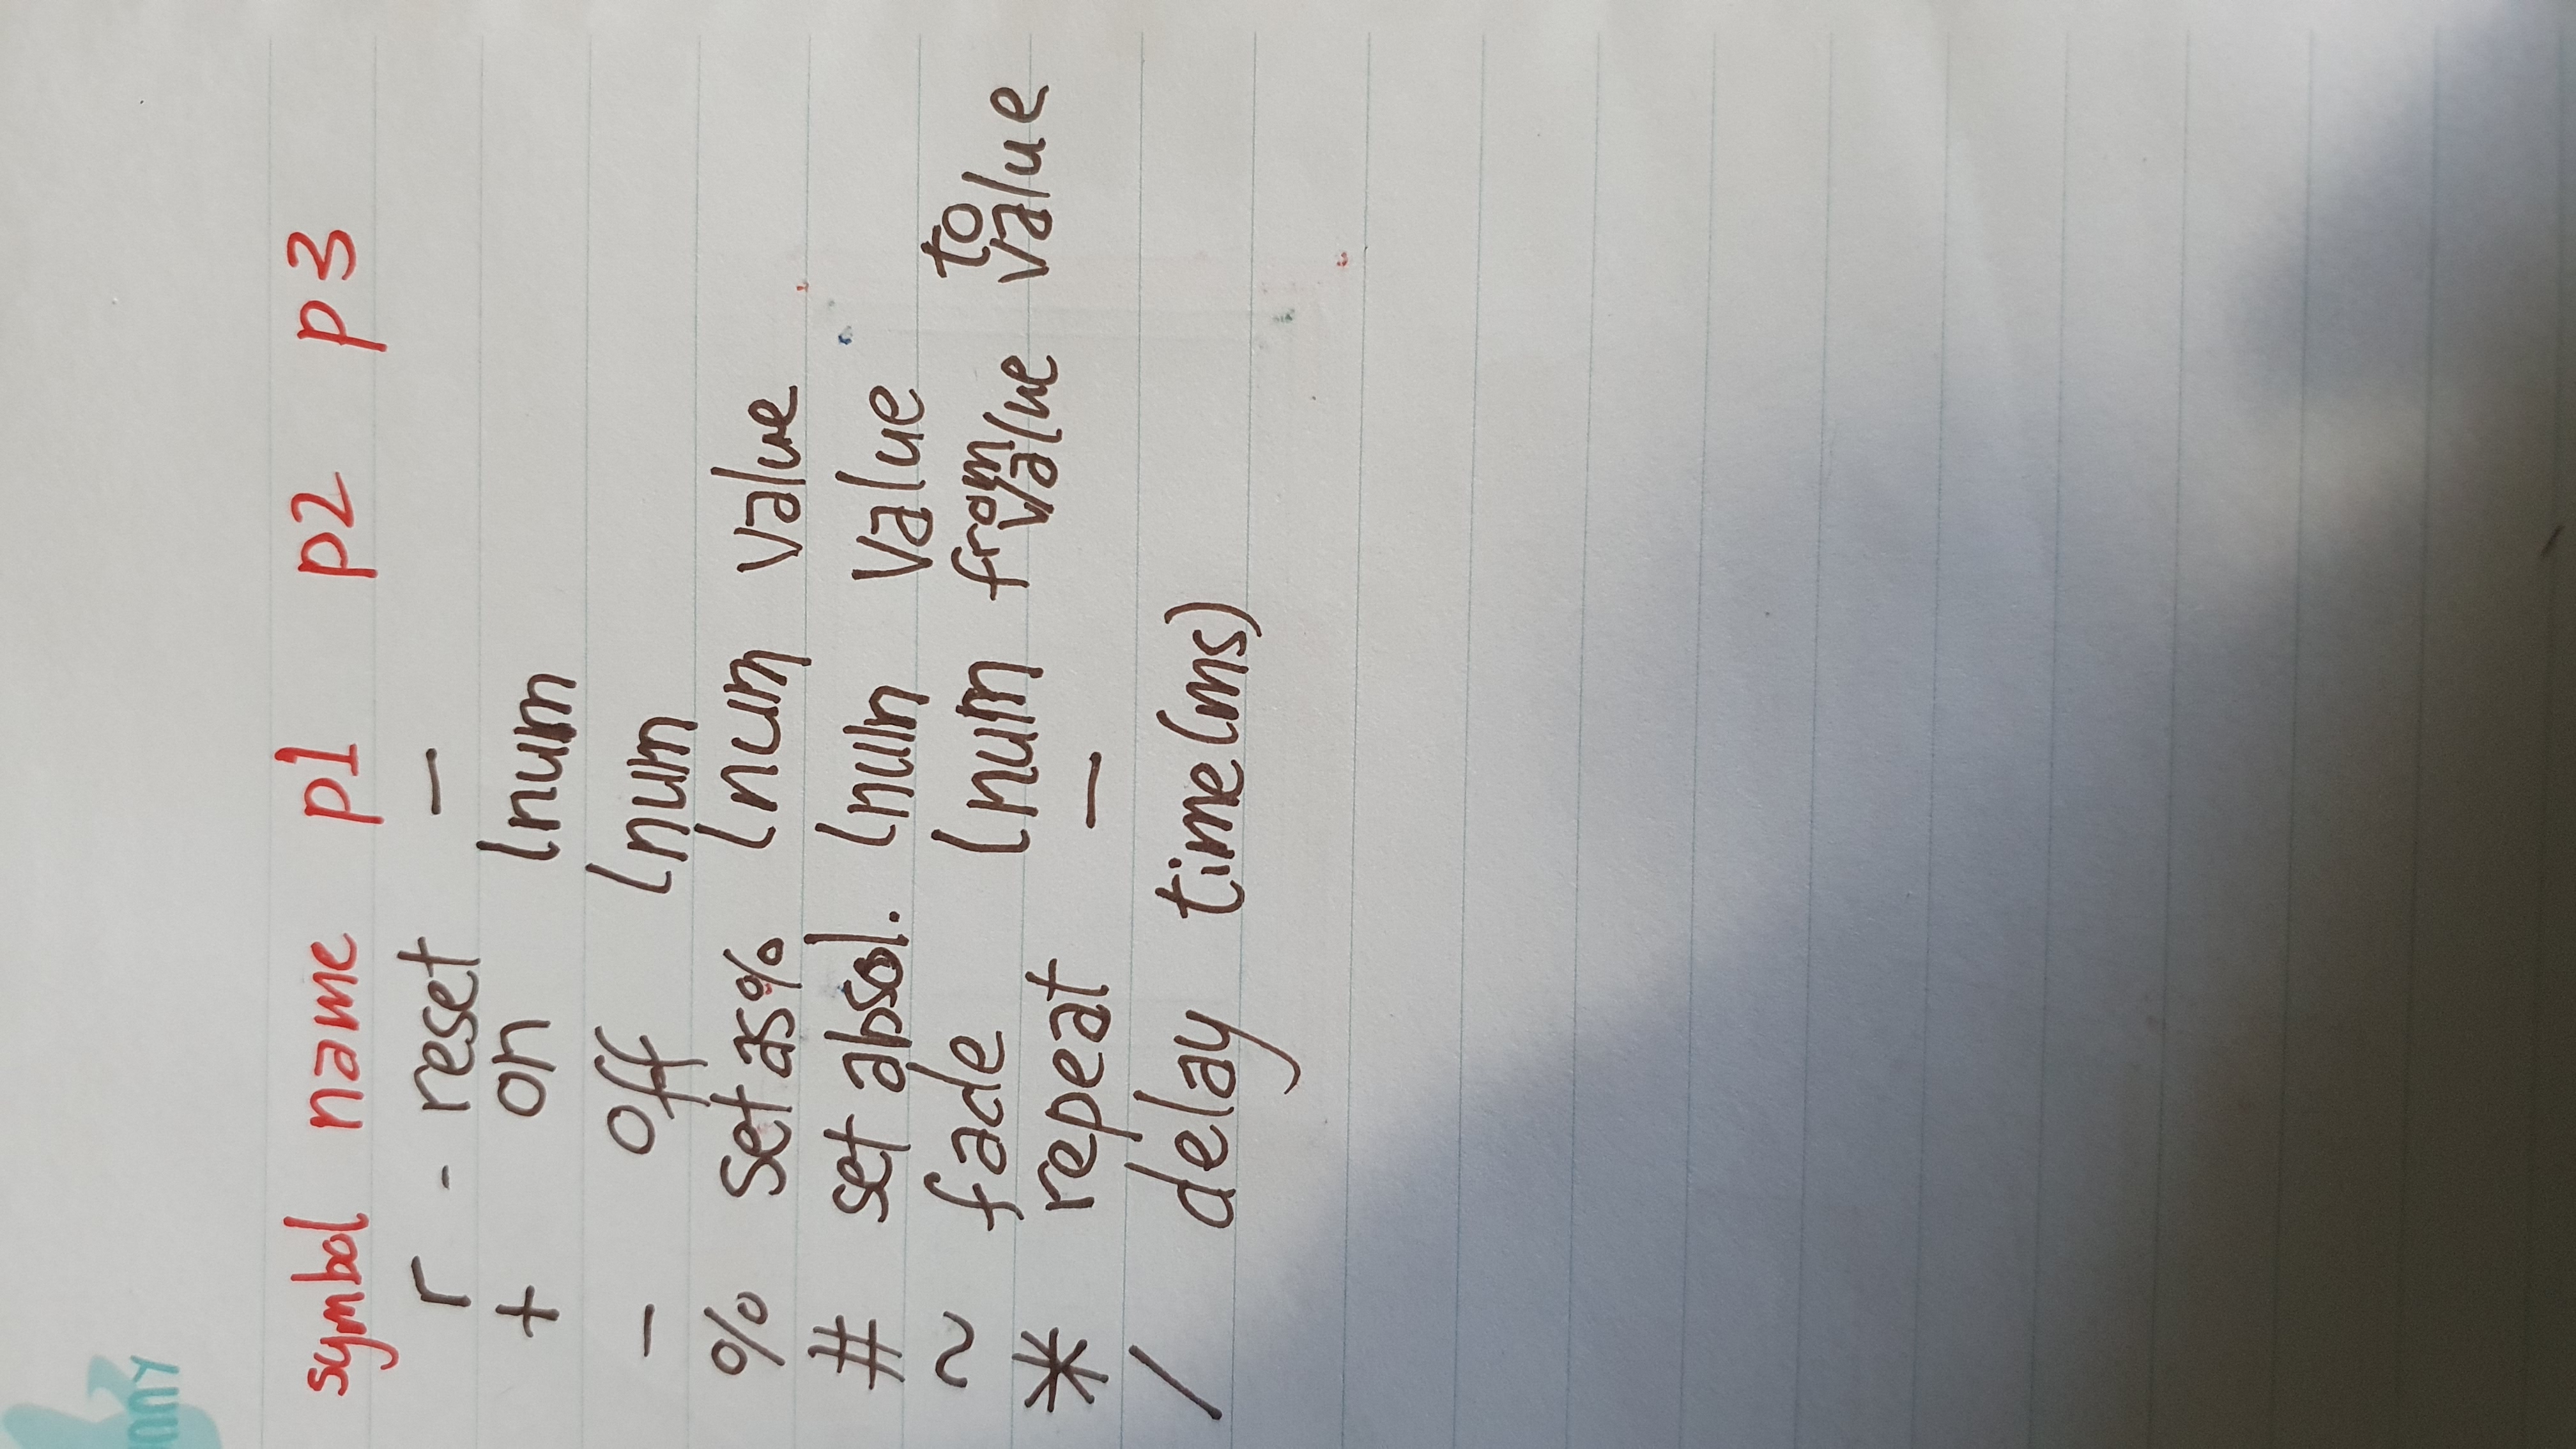 nny
symbol name p1 p2 p3
r - reset —
+ on lnum
— off lnum
% set as% lnum value
# set absol. lnum value
~ fade lnum from value to value
* repeat —
/ delay time(ms)